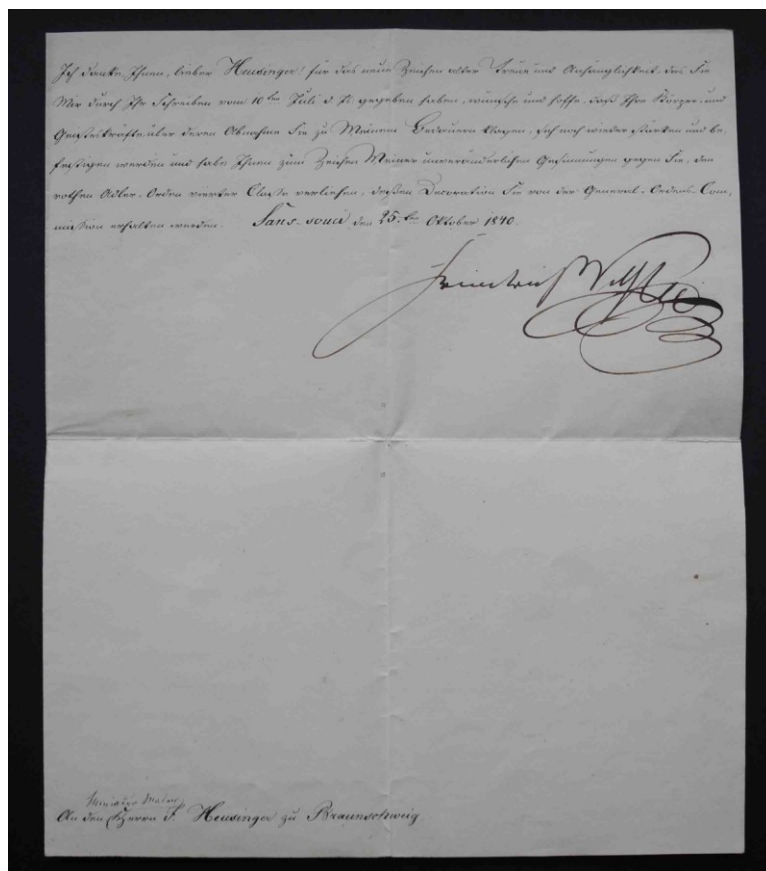 Ich danke Ihnen, lieber Heusinger! für das neue Zeichen alter Treue und Anhänglichkeit, das Sie
Mir durch Ihr Schreiben vom 10ten Juli d. J. gegeben haben, wünsche und hoffe, daß Ihre Körper- und
Geisteskräfte, über deren Abnahme Sie zu Meinem Bedauern klagen, sich noch wieder stärken und be-
festigen werden und habe Ihnen zum Zeichen Meiner unveränderlichen Gesinnungen gegen Sie, den
rothen Adler-Orden vierter Classe verliehen, dessen Decoration Sie von der General-Ordens-Com-
mission erhalten werden. Sans-souci den 25.ten Oktober 1840.
Friedrich Wilhelm
Miniatur Maler
An den Herrn F. Heusinger zu Braunschweig